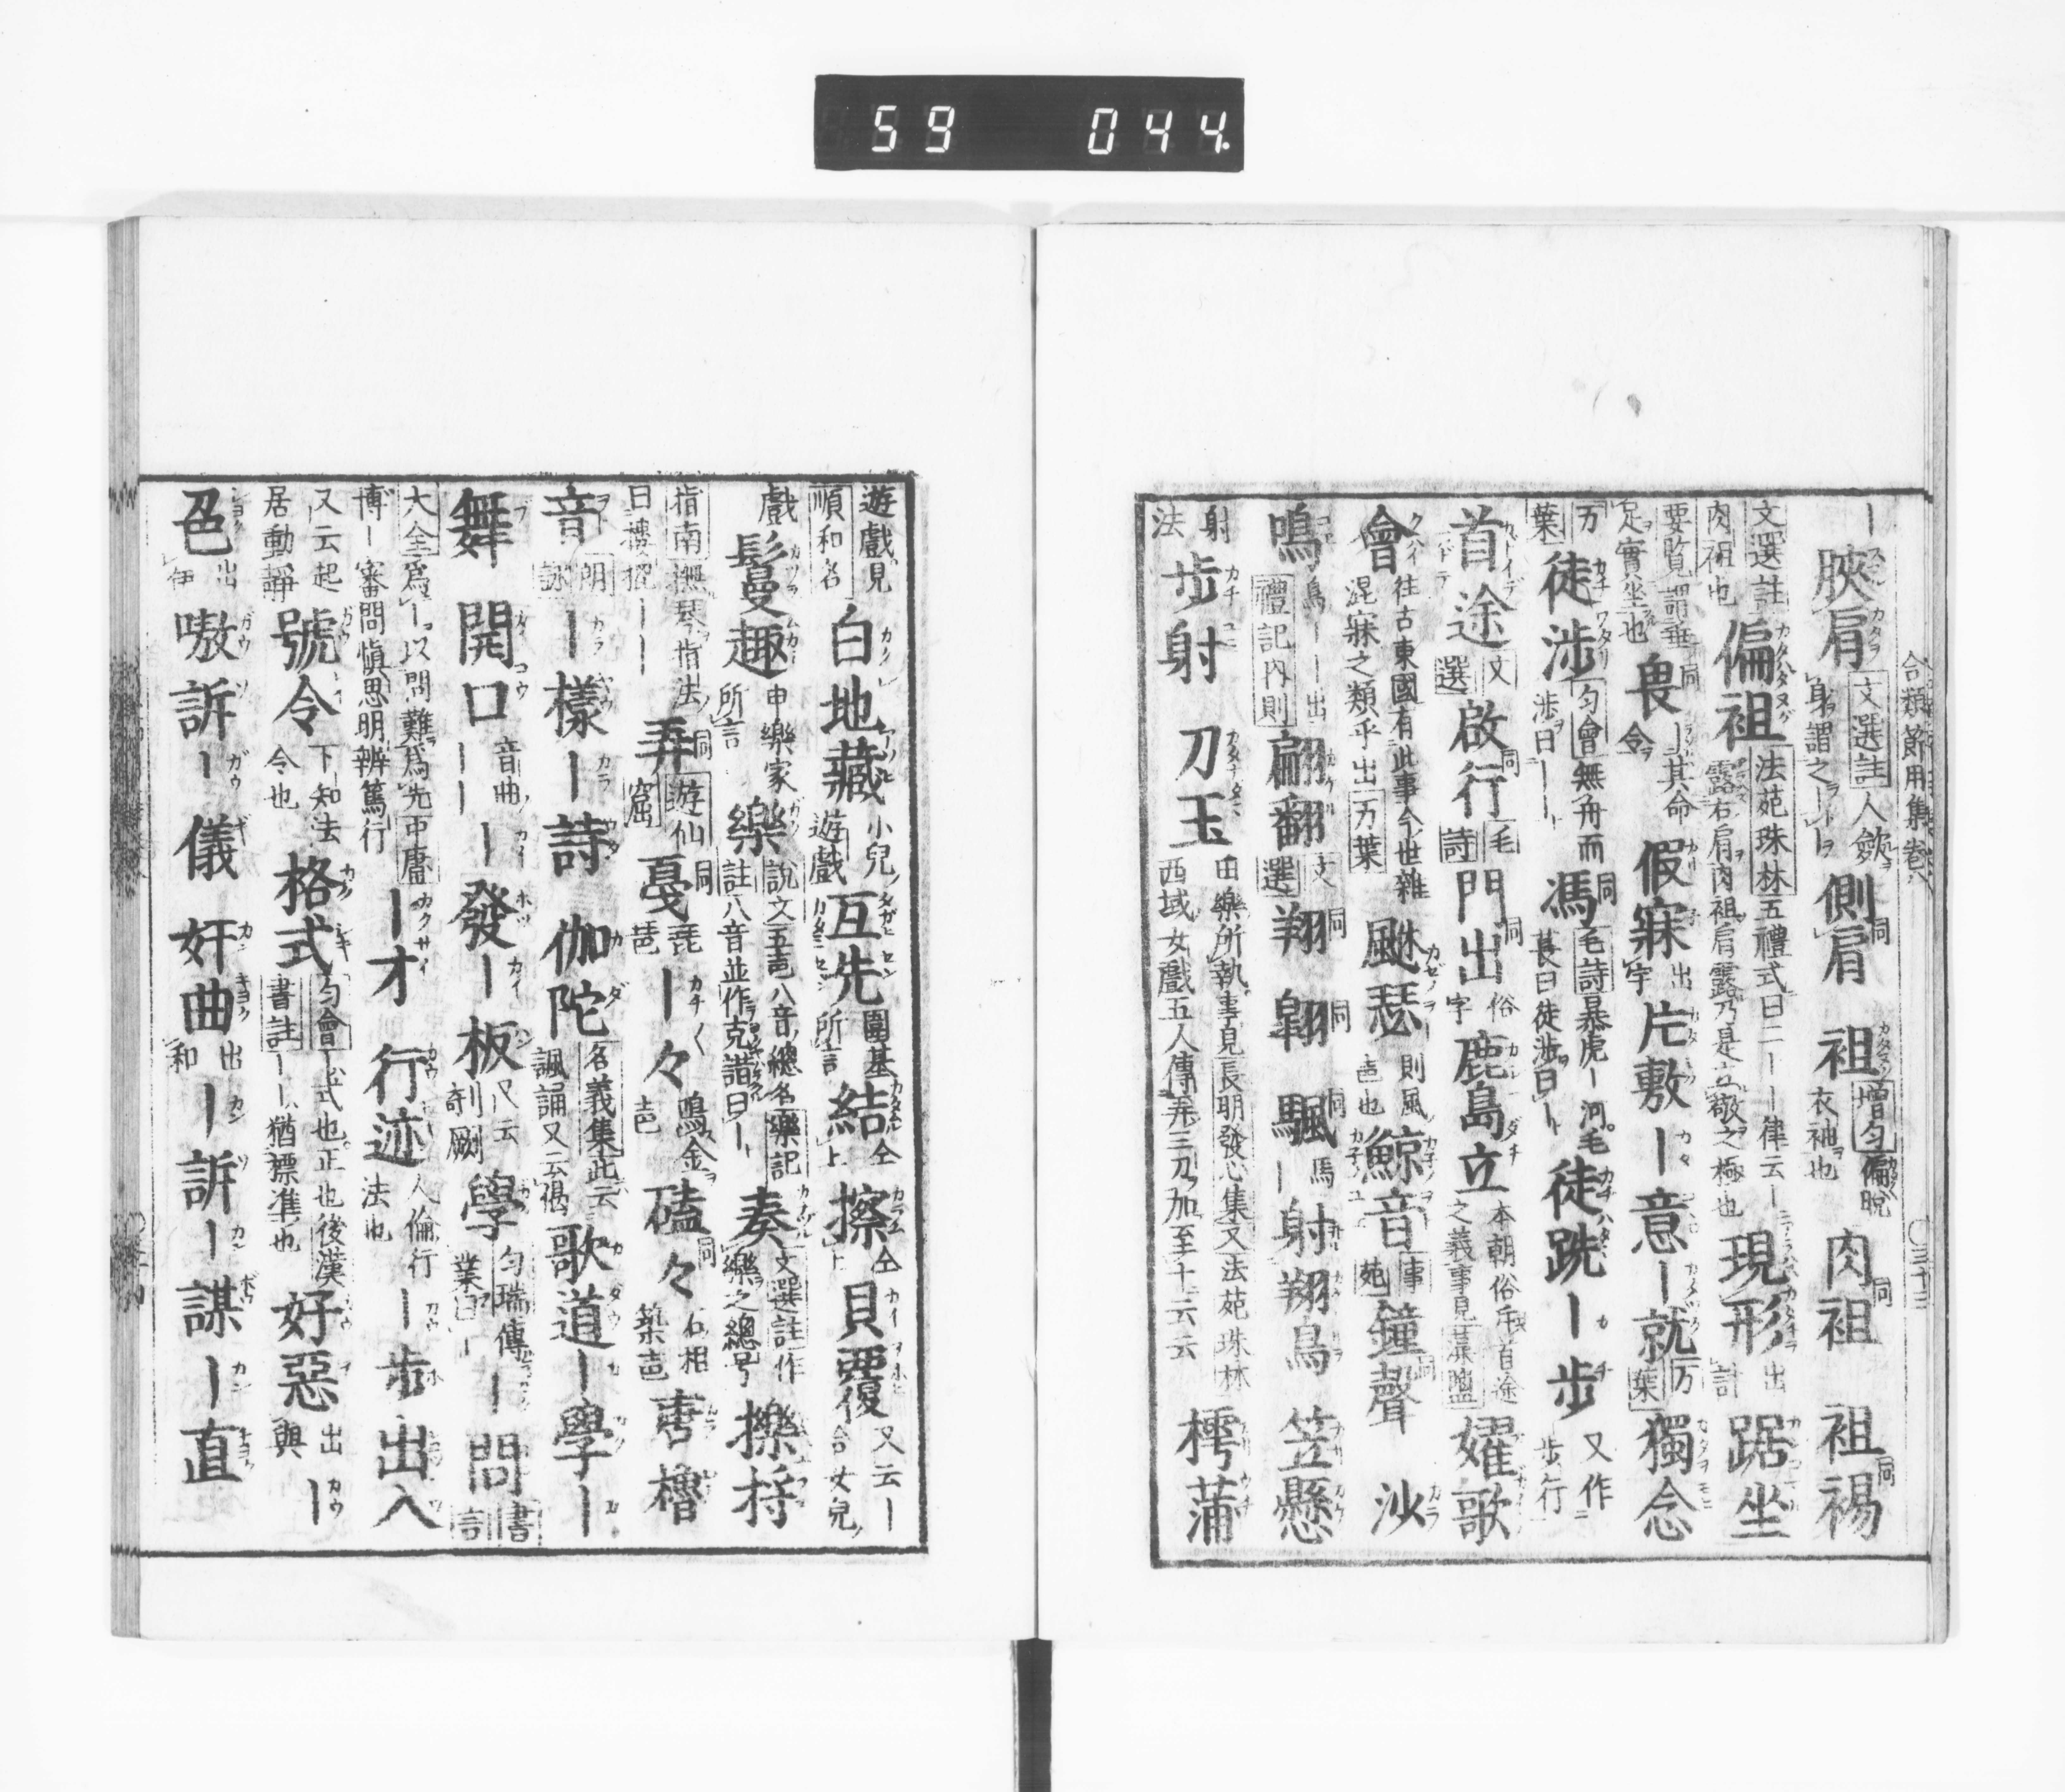 59 044
合類節用集卷八
〇三十三
ー脥肩 文選註人歛身謂之ーー 側肩 同 袒 増匀偏脱衣袖也 肉袒 同 袒裼 同
文選註肉袒也 偏袒 法苑珠林五禮式曰二ーー律云ー露右肩肉袒肩露乃是立敬之極也 現形 出計 踞坐
要覧謂垂足實坐也 畏 同ー其命令 假寐 出字 片敷 ー意 ー就 万葉 獨念
万葉 徒渉 匀會無舟而渉曰ーー 馮 同毛詩暴虎ー河毛萇曰徒渉曰ー 徒跣 ー歩 又作步行
首途 文選 啟行 同毛詩 門出 同俗字 鹿島立 本朝俗斥首途之義事見 嬥歌
會 往古東國有此事今世雜混寐之類乎出万葉 颷瑟 則風也 鯨音 事苑 鐘聲 同 沙
鳴 鳥ーー出禮記内則 翩翻 文選 翔 同 翺 同 䬙 同 ー射翔鳥 笠懸
射法 歩射 刀玉 田樂所執事見長明發心集又法苑珠林西域女戲五人傳弄三刀加至十云云 樗蒲
遊戲見順和名 白地藏 小兒遊戲 互先 圍基所言 結 仝上 擦 仝上 貝覆 又云ー合女兒
戲 鬘 趣 申樂家所言 樂 說文五音八音總名樂記註八音並作克諧曰ー 奏 文選註作樂之總号 擽捋
指南 撫琴指法曰摟摚ーー 弄 同遊仙窟 戞 同琵琶 ー々 鳴金声 磕々 同石相築声 櫓
音 朗詠 ー樣 ー詩 伽陀 名義集此云諷誦又云偈 歌道 ー學 ー
舞 開口 音曲ーー ー發 ー板 又云剞劂 學 匀瑞傳業曰ー ー問 書言
大全爲ー以問難爲先中庸博ー審問慎思明辨篤行 ー才 行迹 人倫行法也 ー歩 出入
又云起居動靜 號令 下知法令也 格式 匀會ー式也正也後漢書註ーー猶標準也 好惡 出與 ー
色 出伊 嗷訴 ー儀 奸曲 出和 ー訴 ー謀 ー直